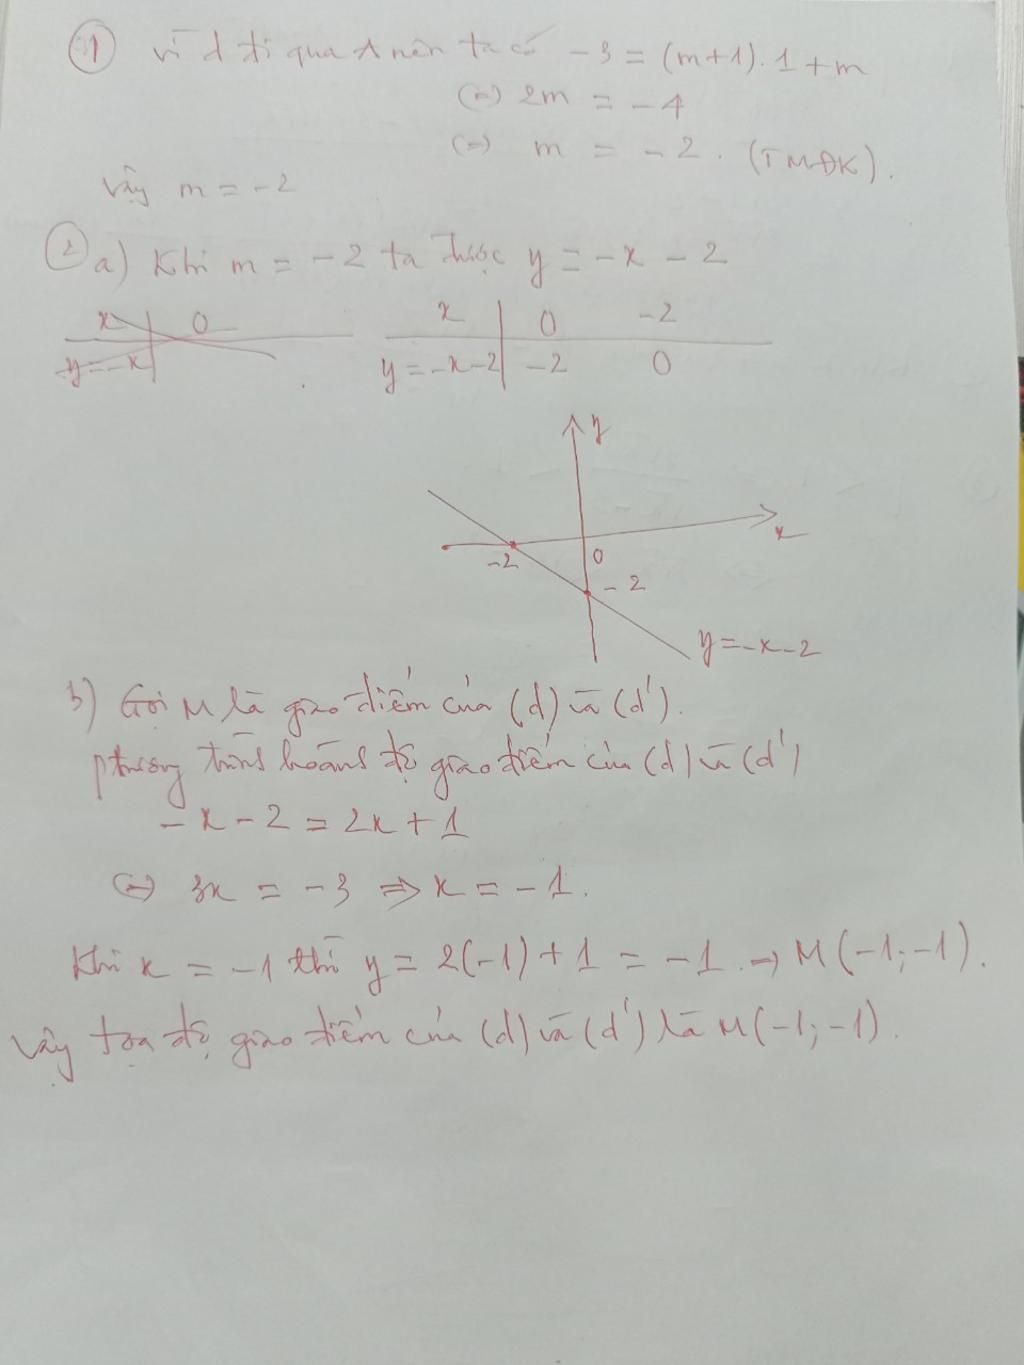 ① Vì d đi qua A nên ta có -3 = (m+1).1+m
(=) 2m = -4
(=) m = -2. (TMĐK).
Vậy m = -2
② a) Khi m = -2 ta được y = -x - 2
x 0
y=-x
x 0 -2
y=-x-2 -2 0
y
x
-2 0
-2
y=-x-2
b) Gọi M là giao điểm của (d) và (d').
phương trình hoành độ giao điểm của (d) và (d')
-x-2 = 2x+1
(=) 3x = -3 => x = -1.
Khi x = -1 thì y = 2(-1)+1 = -1. => M(-1;-1).
Vậy tọa độ giao điểm của (d) và (d') là M(-1;-1).